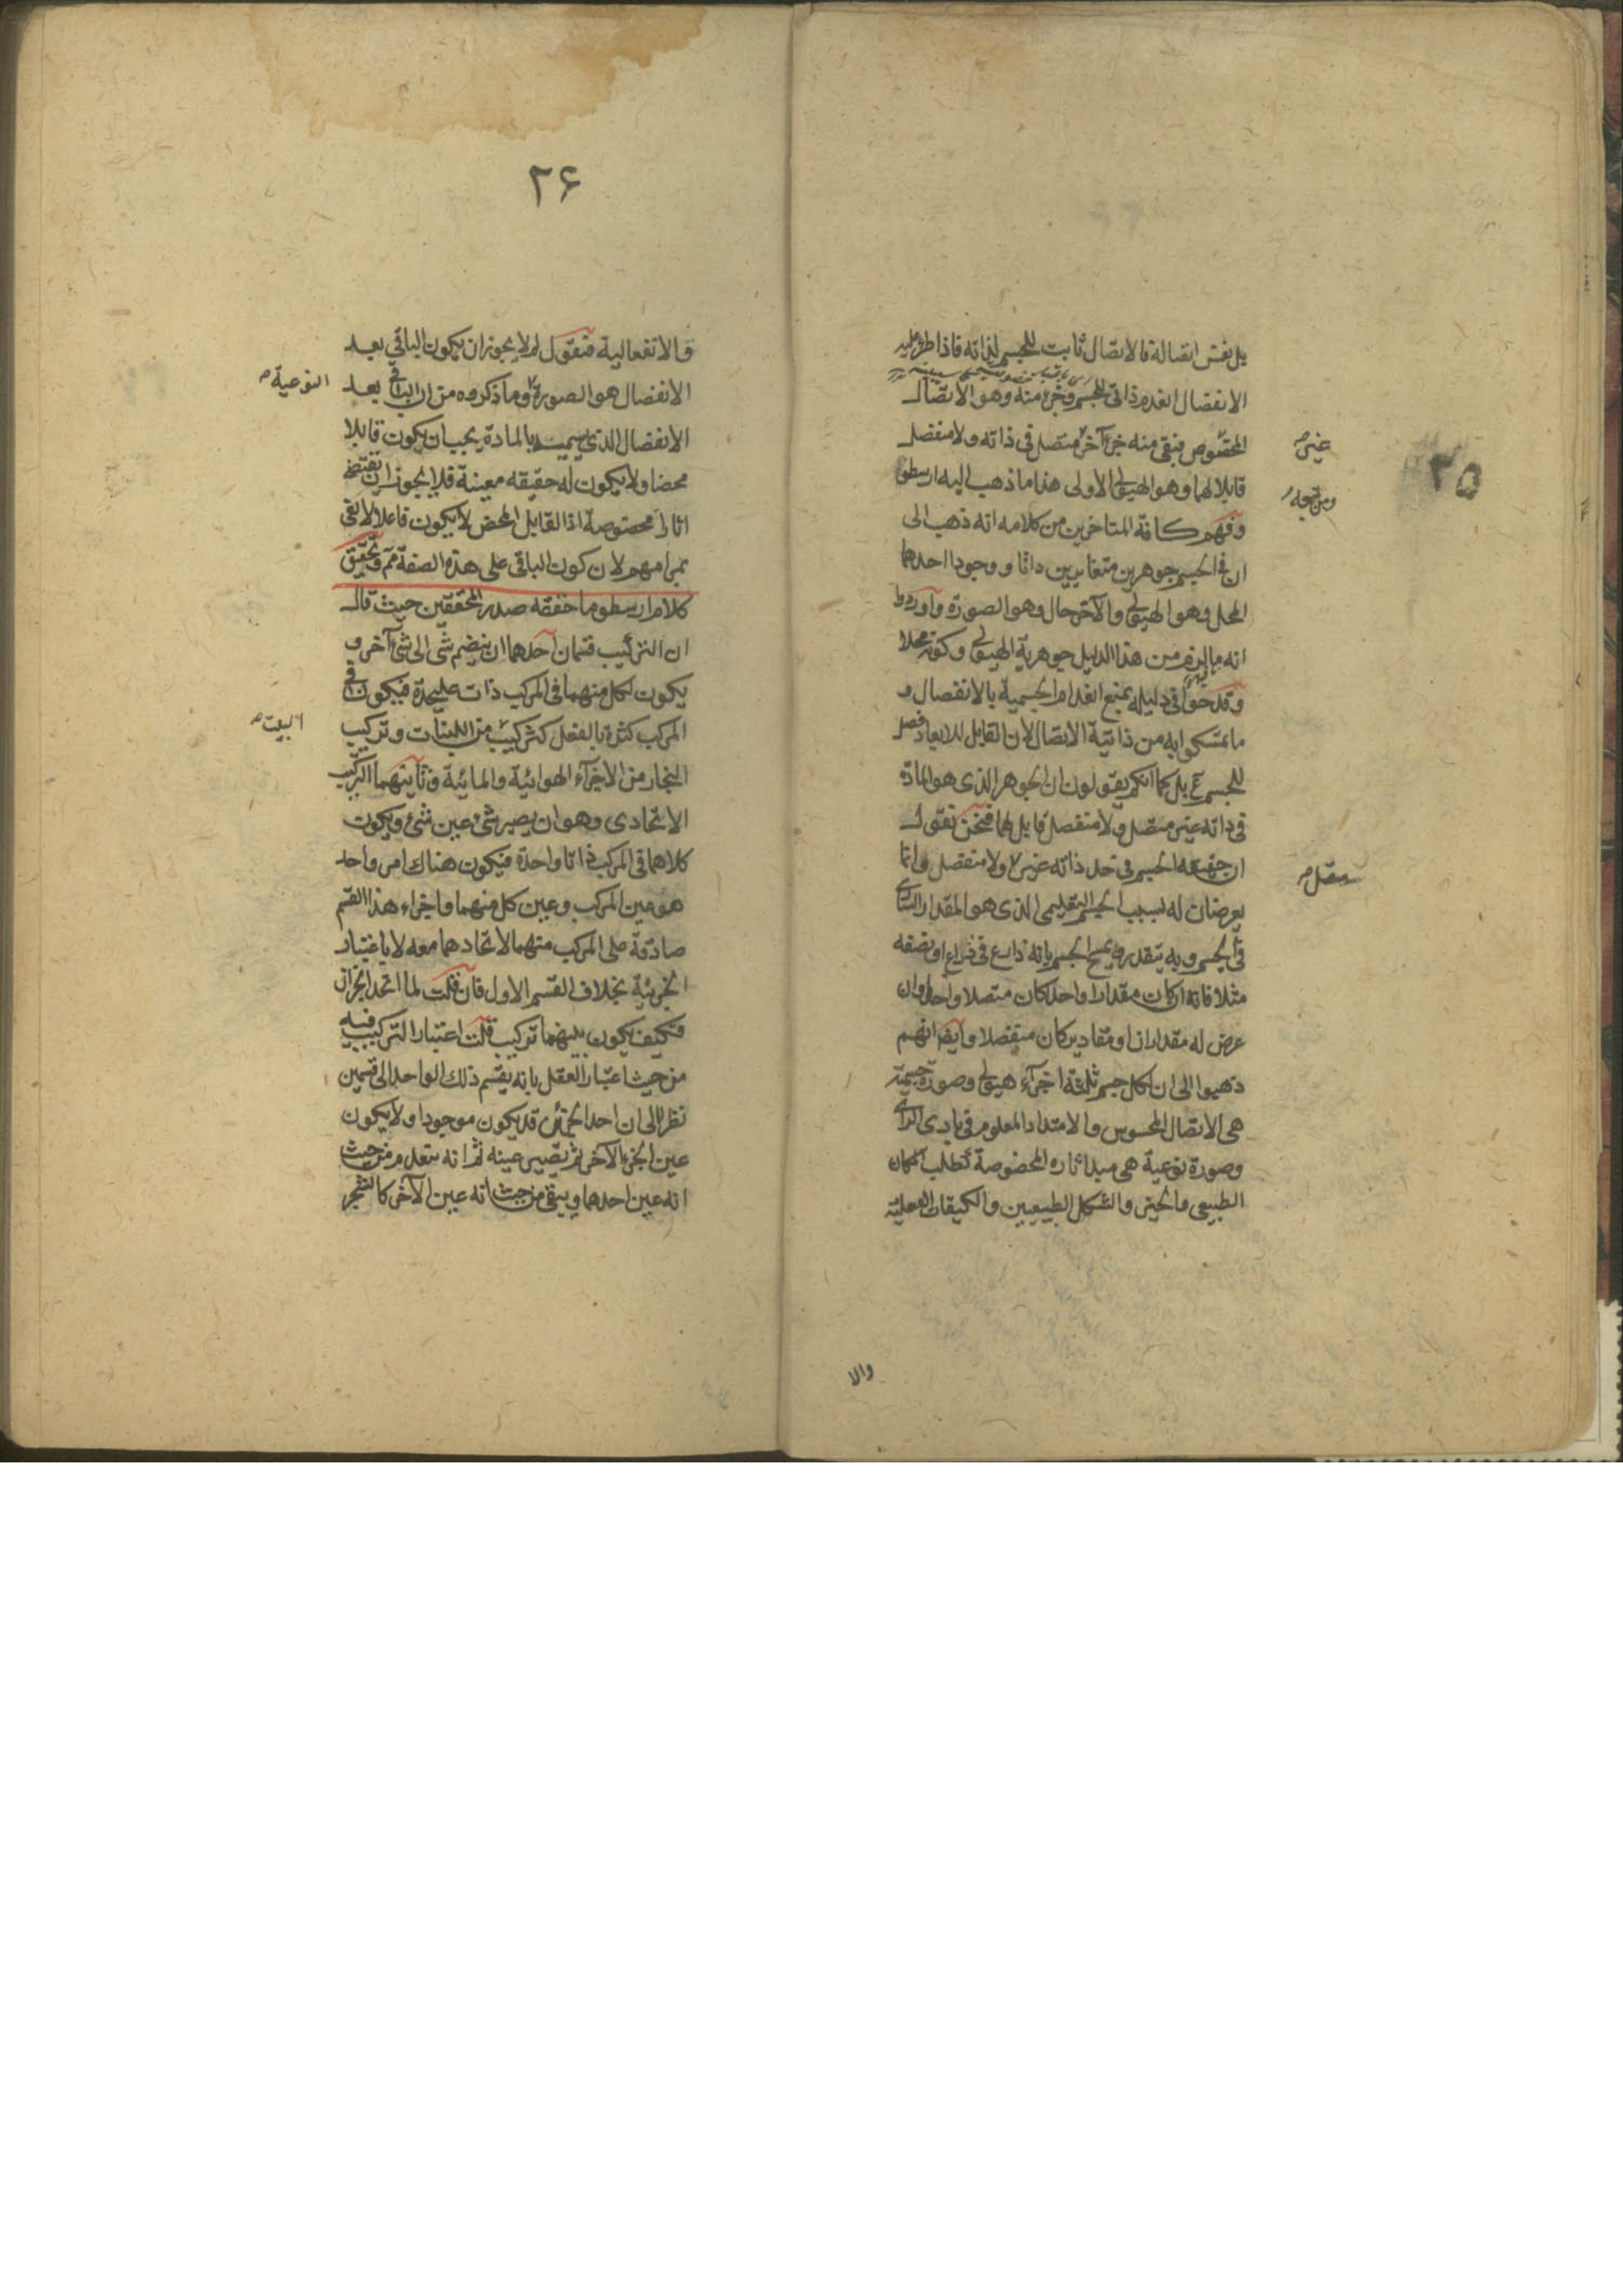 ٢٥
بل نفس اتصالة فالاتصال ثابت للجسم لذاته فاذا طرء عليه
الانفصال انعدم ذاتى للجسم وجزء منه وهو الاتصال
المخصوص فبقى منه جزء آخر متصل فى ذاته ولا منفصل
غير
قابلا لهما وهو الهيولى الاولى هذا ما ذهب اليه ارسطو
ومن تبعه
وفهم كافة المتاخرين من كلامه انه ذهب الى
ان فى الجسم جوهرين متغايرين ذاتا و وجودا احدهما
المحل وهو الهيولى والآخر حال وهو الصورة واوردوا
انه ما لزم من هذا الدليل جوهرية الهيولى وكونه محلا
وقدحوا فى دليله بمنع انعدام الجسمية بالانفصال و
ما تمسكوا به من ذاتية الاتصال لان القابل للابعاد فصل
للجسم بل كما انكم يقولون ان الجوهر الذى هو المادة
فى ذاته غير متصل ولا منفصل قابل لهما فنحن نقول
ان حقيقه الجسم فى حد ذاته غير ولا منفصل وانما
متصل
يعرضان له بسبب الجسم التعليمى الذى هو المقدار السارى
فى الجسم وبه يتقدر ويمسح الجسم بانه ذراع فى ذراع او نصفه
مثلا فانه ان كان مقدارا واحدا كان متصلا واحدا وان
عرض له مقداران او مقادير كان منفصلا وايضا انهم
ذهبوا الى ان لكل جسم ثلثة اجزآء هيولى وصورة جسمية
هى الاتصال المحسوس والامتداد المعلوم فى بادى الراى
وصورة نوعية هى مبدا آثاره المخصوصة كطلب المكان
الطبيعى والحيز والشكل الطبيعيين والكيفيات الفعلية
والا
٢۶
والانفعالية فنقول لم لا يجوز ان يكون الباقي بعد
الانفصال هو الصورة وما ذكروه من ان الباقى بعد
النوعية
الانفصال الذى يسميه بالمادة يجب ان يكون قابلا
محضا ولا يكون له حقيقه معينة فلا يجوز ان يقتضى
اثارا مخصوصة اذ القابل المحض لا يكون فاعلا لا يفى
بمرامهم لان كون الباقى على هذه الصفة مم وتحقيق
كلام ارسطو ما حققه صدر المحققين حيث قال
ان التركيب قسمان احدهما ان ينضم شى الى شئ آخر و
يكون لكل منهما فى المركب ذات عليحدة فيكون فى
المركب كثرة بالفعل كتركيب من اللبنات وتركيب
البيت
البخار من الاجزآء الهوائية والمائية وثانيهما التركيب
الاتحادى وهو ان يصير شئ عين شئ ويكون
كلاهما فى المركب ذاتا واحدة فيكون هناك امر واحد
هو عين المركب وعين كل منهما واجزاء هذا القسم
صادقة على المركب منهما لاتحادهما معه لا باعتبار
الجزئية بخلاف القسم الاول فان قلت لما اتحد الجزان
فكيف يكون بينهما تركيب قلت اعتبار التركيب فيه
من حيث اعتبار العقل بانه يقسم ذلك الواحد الى قسمين
نظرا الى ان احد الجزئين قد يكون موجودا ولا يكون
عين الجزء الآخر ثم يصير عينه ثم انه ينعدم من حيث
انه عين احدهما ويبقى من حيث انه عين الآخر كالشجر